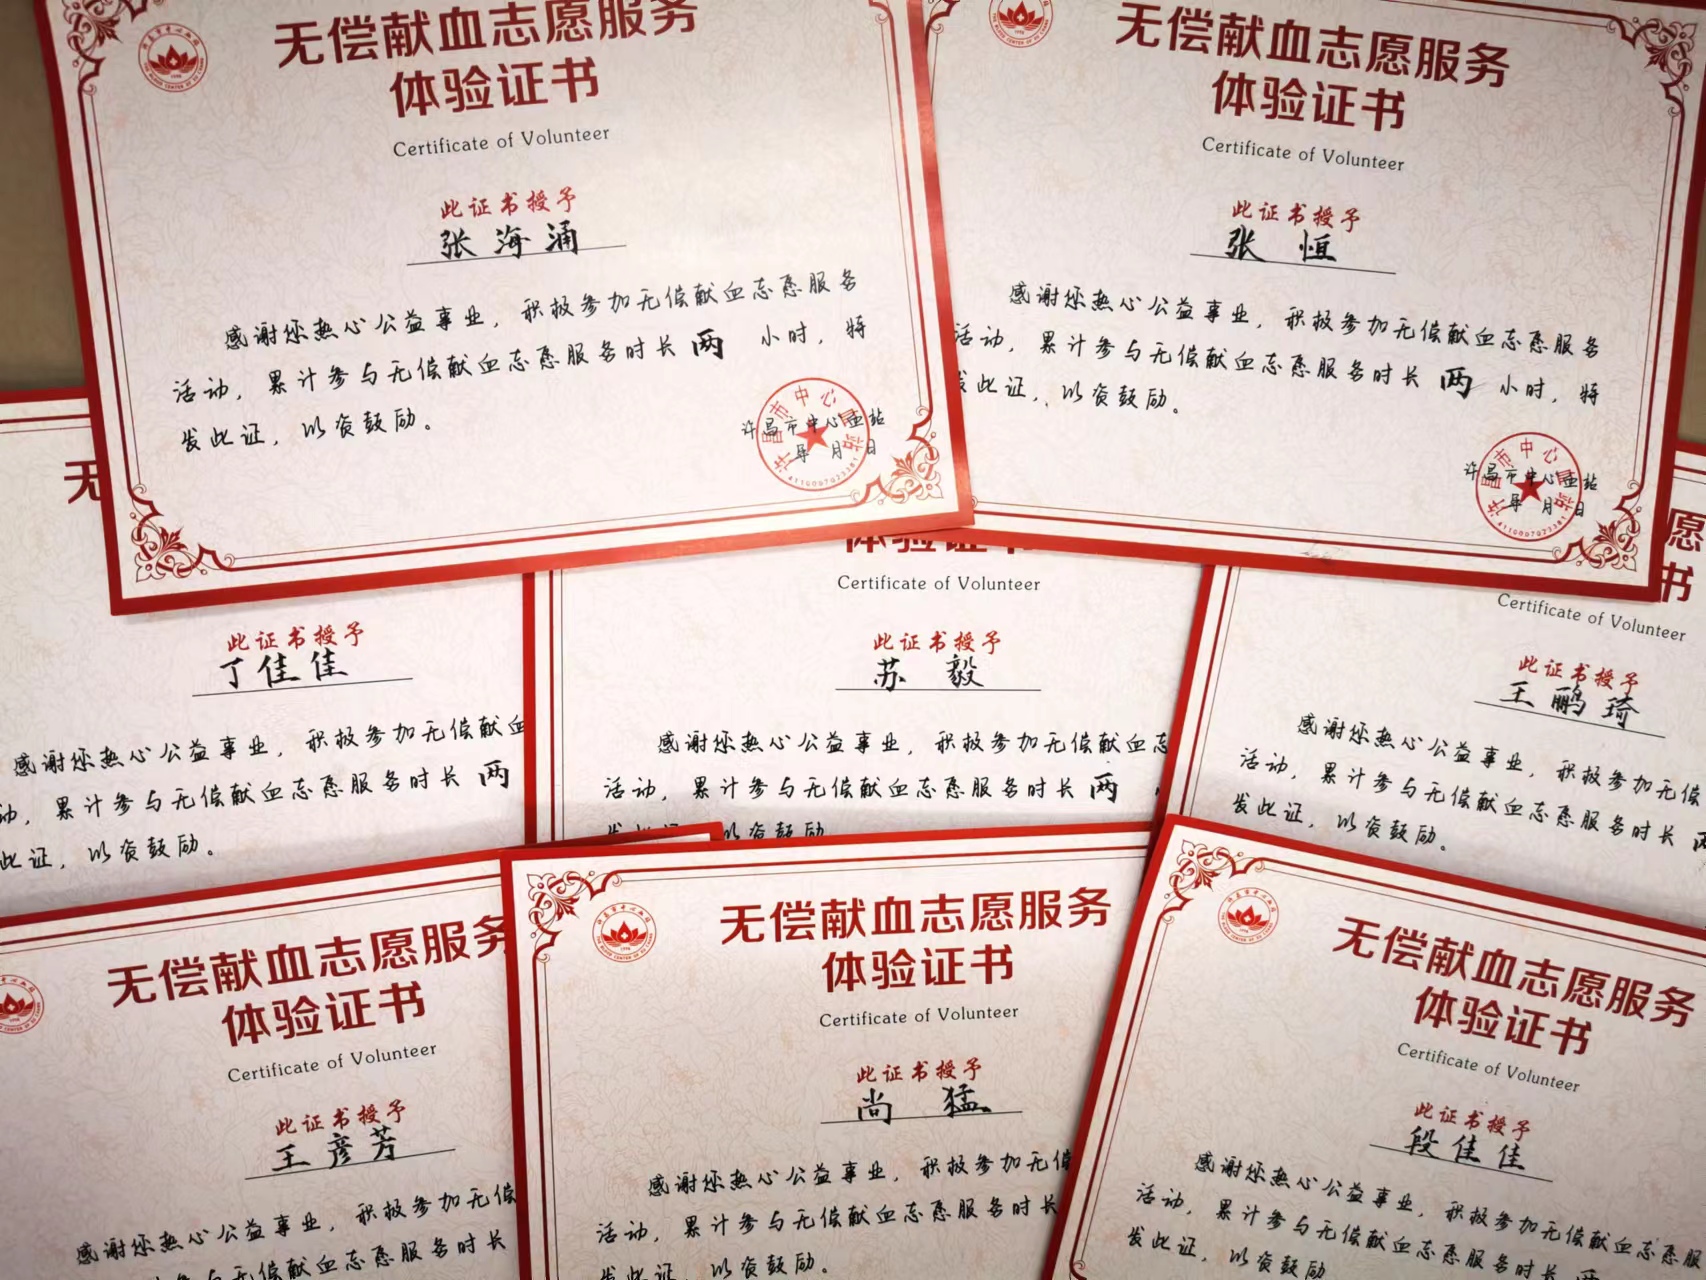 无偿献血志愿服务
体验证书
Certificate of Volunteer
此证书授予
张海涌
感谢您热心公益事业，积极参加无偿献血志愿服务
活动，累计参与无偿献血志愿服务时长 两 小时，特
发此证，以资鼓励。
许昌市中心血站
年 月 日
无偿献血志愿服务
体验证书
Certificate of Volunteer
此证书授予
张恒
感谢您热心公益事业，积极参加无偿献血志愿服务
活动，累计参与无偿献血志愿服务时长 两 小时，特
发此证，以资鼓励。
许昌市中心血站
年 月 日
无
此证书授予
丁佳佳
感谢您热心公益事业，积极参加无偿献血
动，累计参与无偿献血志愿服务时长 两
此证，以资鼓励。
体验证书
Certificate of Volunteer
此证书授予
苏毅
感谢您热心公益事业，积极参加无偿献血志
活动，累计参与无偿献血志愿服务时长 两
发此证，以资鼓励
愿
书
Certificate of Volunteer
此证书授予
王鹏琦
感谢您热心公益事业，积极参加无偿
活动，累计参与无偿献血志愿服务时长 两
发此证，以资鼓励。
无偿献血志愿服务
体验证书
Certificate of Volunteer
此证书授予
王彦芳
感谢您热心公益事业，积极参加无偿
参与无偿献血志愿服务时长
无偿献血志愿服务
体验证书
Certificate of Volunteer
此证书授予
尚猛
感谢您热心公益事业，积极参加无偿
活动，累计参与无偿献血志愿服务时长
发此证，以资鼓励。
无偿献血志愿服务
体验证书
Certificate of Volunteer
此证书授予
段佳佳
感谢您热心公益事业，积极参加无偿献
活动，累计参与无偿献血志愿服
发此证，以资鼓励。